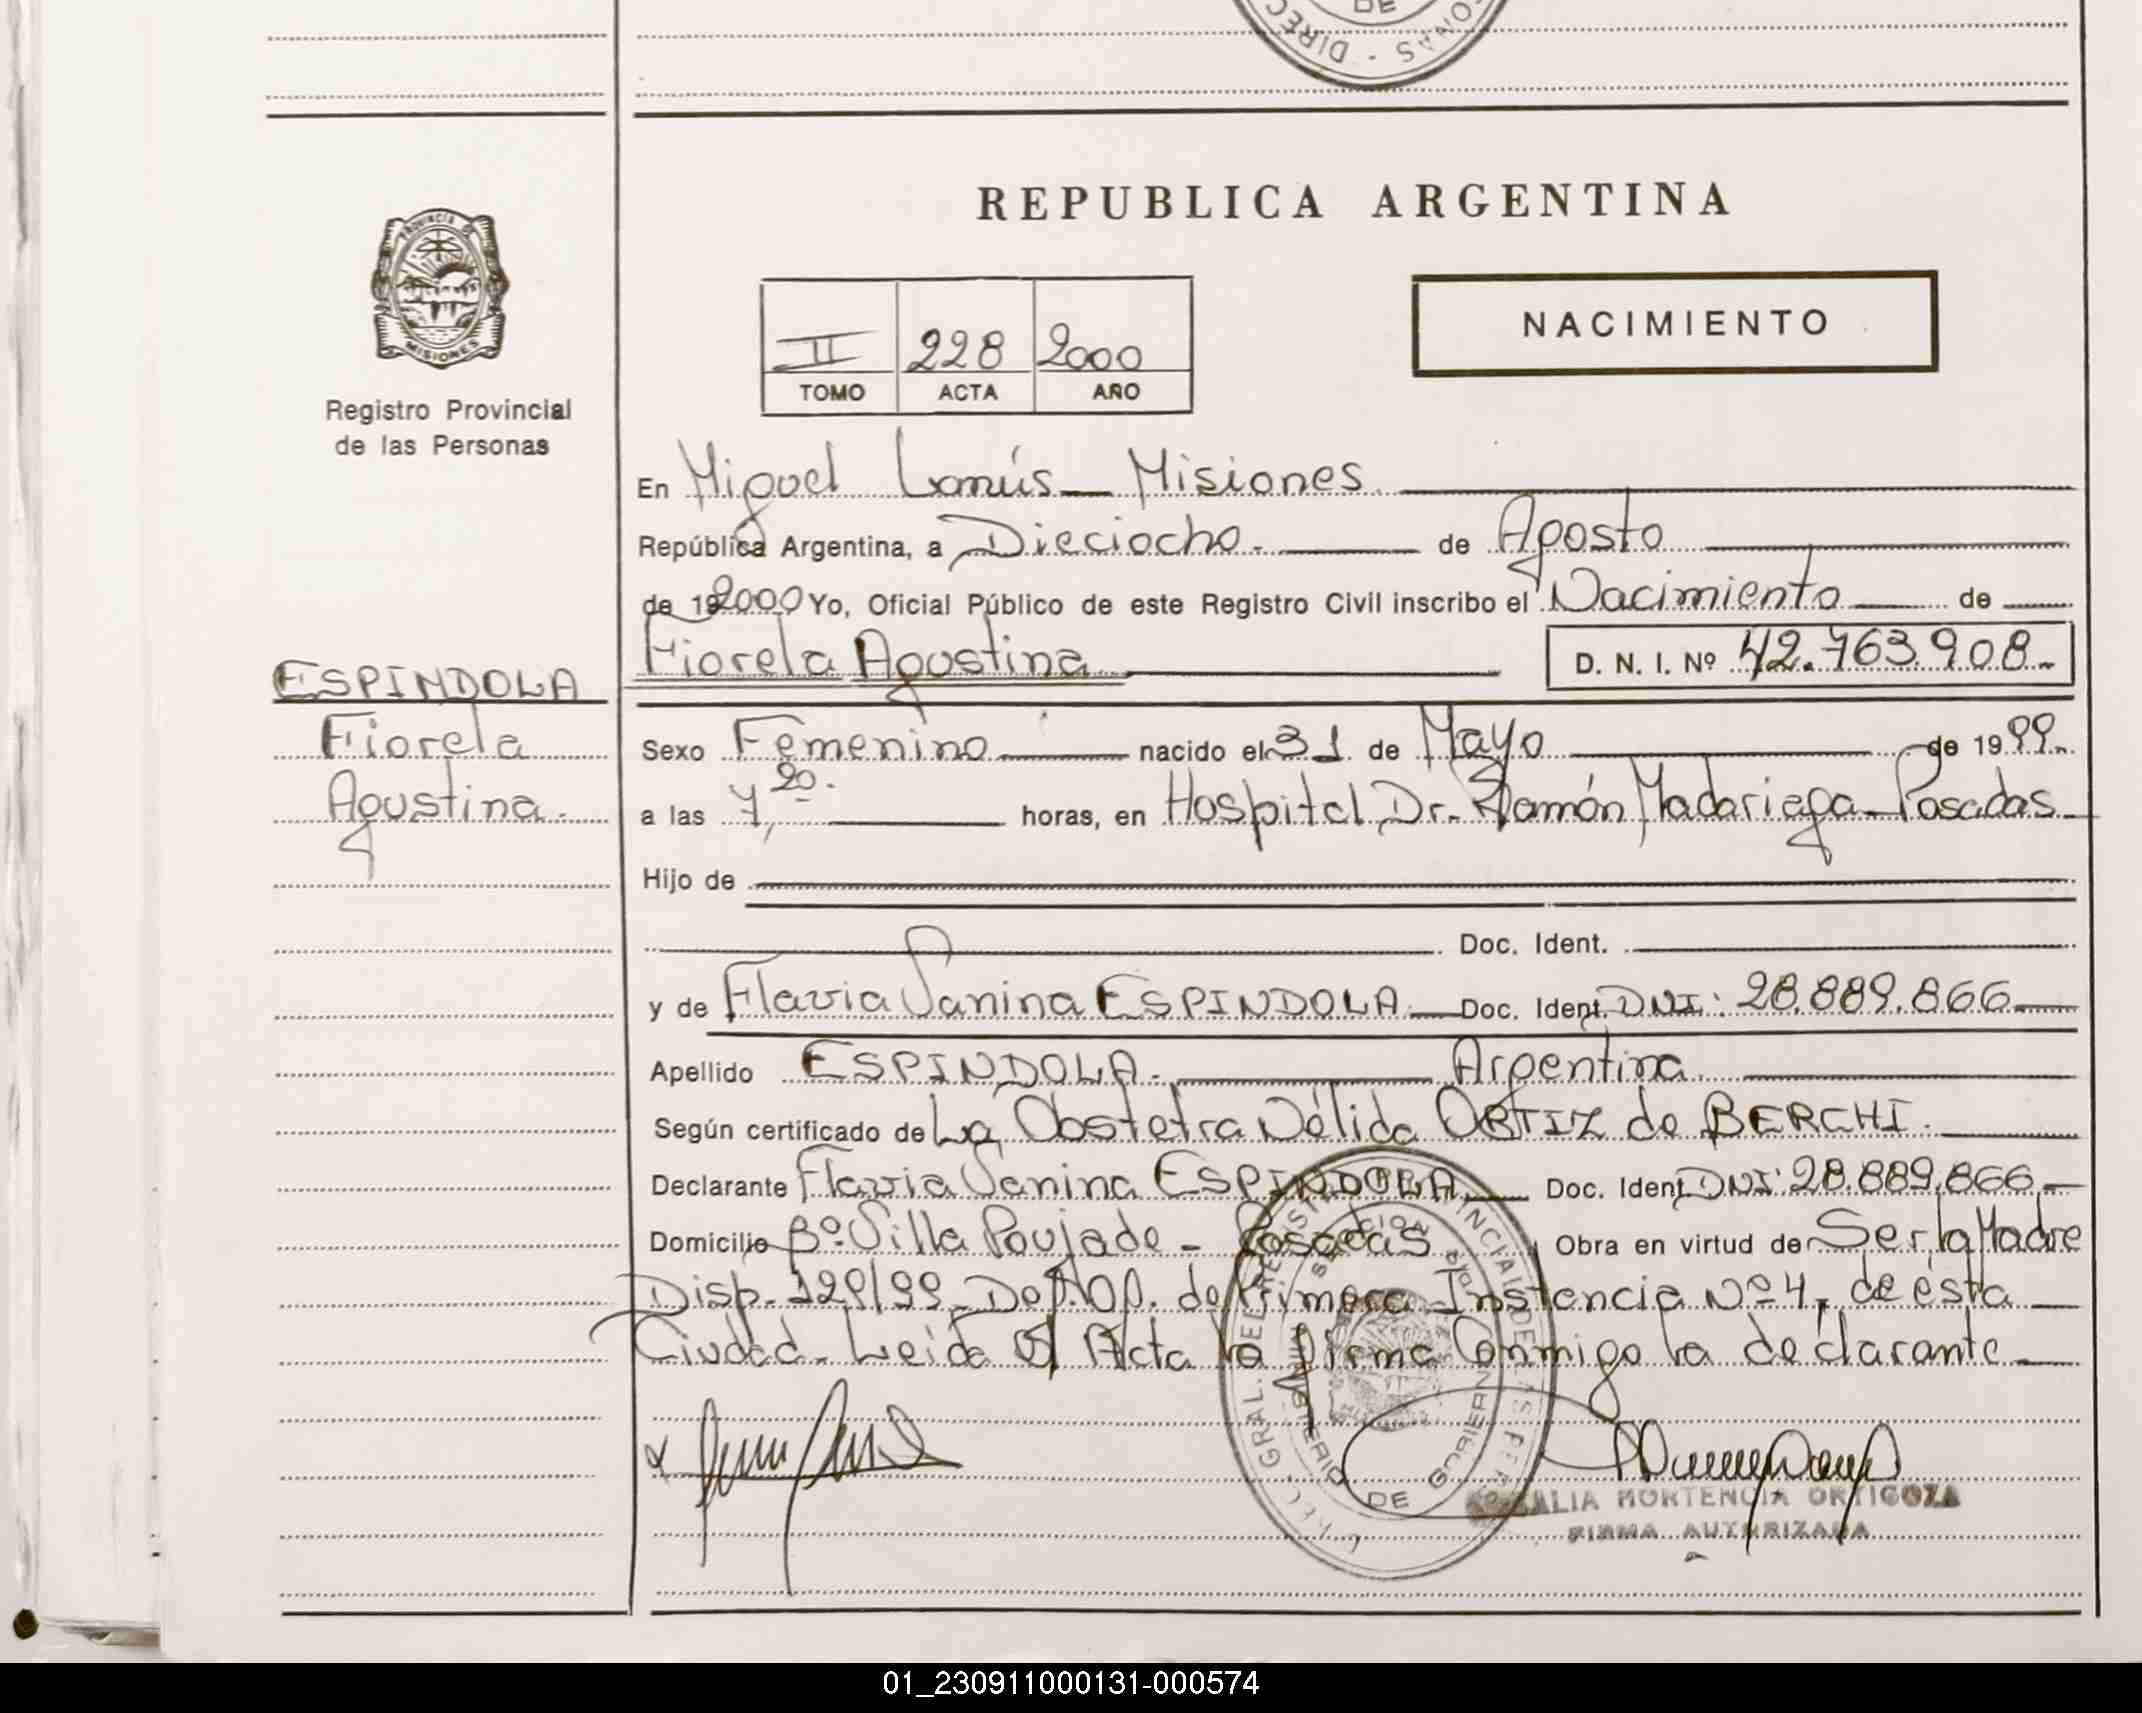 DIREC
DE
ONAS
REPUBLICA ARGENTINA
PROVINCIA DE
MISIONES
Registro Provincial
de las Personas
II 228 2000
TOMO ACTA AÑO
NACIMIENTO
En Miguel Lanús - Misiones.
República Argentina, a Dieciocho.- de Agosto
de 192000 Yo, Oficial Público de este Registro Civil inscribo el Nacimiento de
Fiorela Agustina
D. N. I. Nº 42.763.908.-
ESPINDOLA
Fiorela
Agustina.-
Sexo Femenino nacido el 31 de Mayo de 1999.-
a las 7,20.- horas, en Hospital Dr. Ramón Madariaga - Posadas
Hijo de
Doc. Ident.
y de Flavia Vanina ESPINDOLA Doc. Ident. DNI: 28.889.866
Apellido ESPINDOLA.- Argentina.
Según certificado de La Obstetra Nélida ORTIZ de BERCHI.
Declarante Flavia Vanina ESPINDOLA Doc. Ident. DNI: 28.889.866
Domicilio Bº Villa Poujade - Posadas Obra en virtud de Ser la Madre
Disp. 129/99 de Primera Instancia Nº 4, de ésta
Ciudad. Leida el Acta la firma Conmigo la declarante
MINISTERIO DE GOBIERNO
ALIA HORTENCIA ORTIGOZA
FIRMA AUTORIZADA
01_230911000131-000574